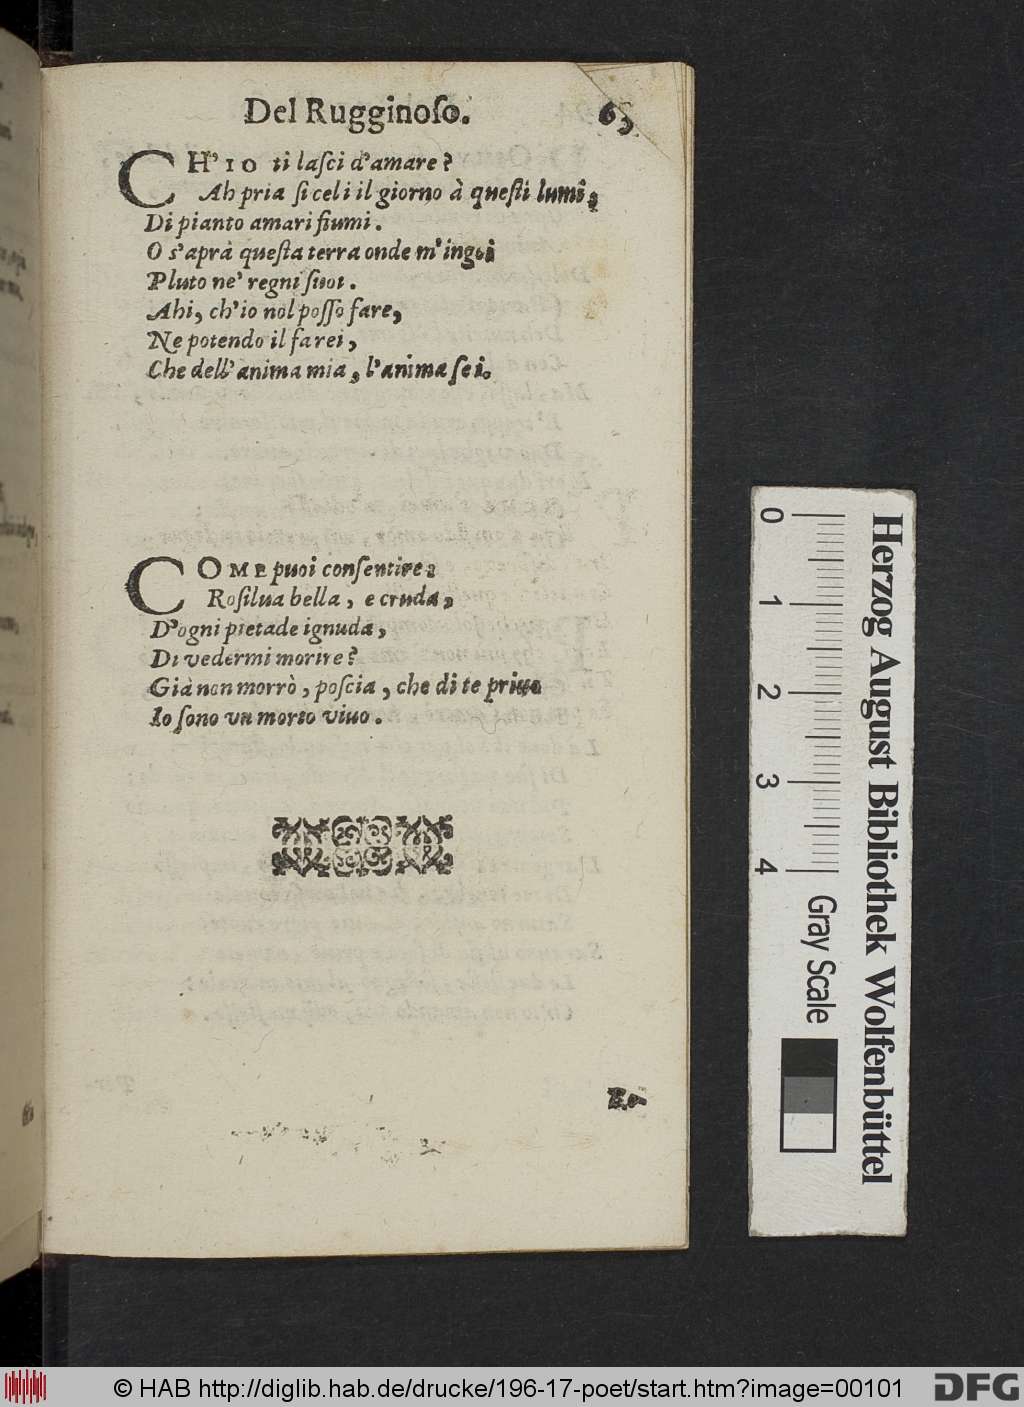 Del Rugginoſo. 65
CH'IO ti laſci d'amare?
Ah pria ſi celi il giorno à queſti lumi,
Di pianto amari fiumi.
O s'aprà queſta terra onde m'ingoi
Pluto ne' regni ſuoi.
Ahi, ch'io nol poſſo fare,
Ne potendo il farei,
Che dell'anima mia, l'anima ſei.
COME puoi conſentire
Roſilua bella, e cruda,
D'ogni pietade ignuda,
Di vedermi morire?
Già non morrò, poſcia, che di te priuo
Io ſono vn morto viuo.
0 1 2 3 4
Gray Scale
Herzog August Bibliothek Wolfenbüttel
© HAB http://diglib.hab.de/drucke/196-17-poet/start.htm?image=00101
DFG